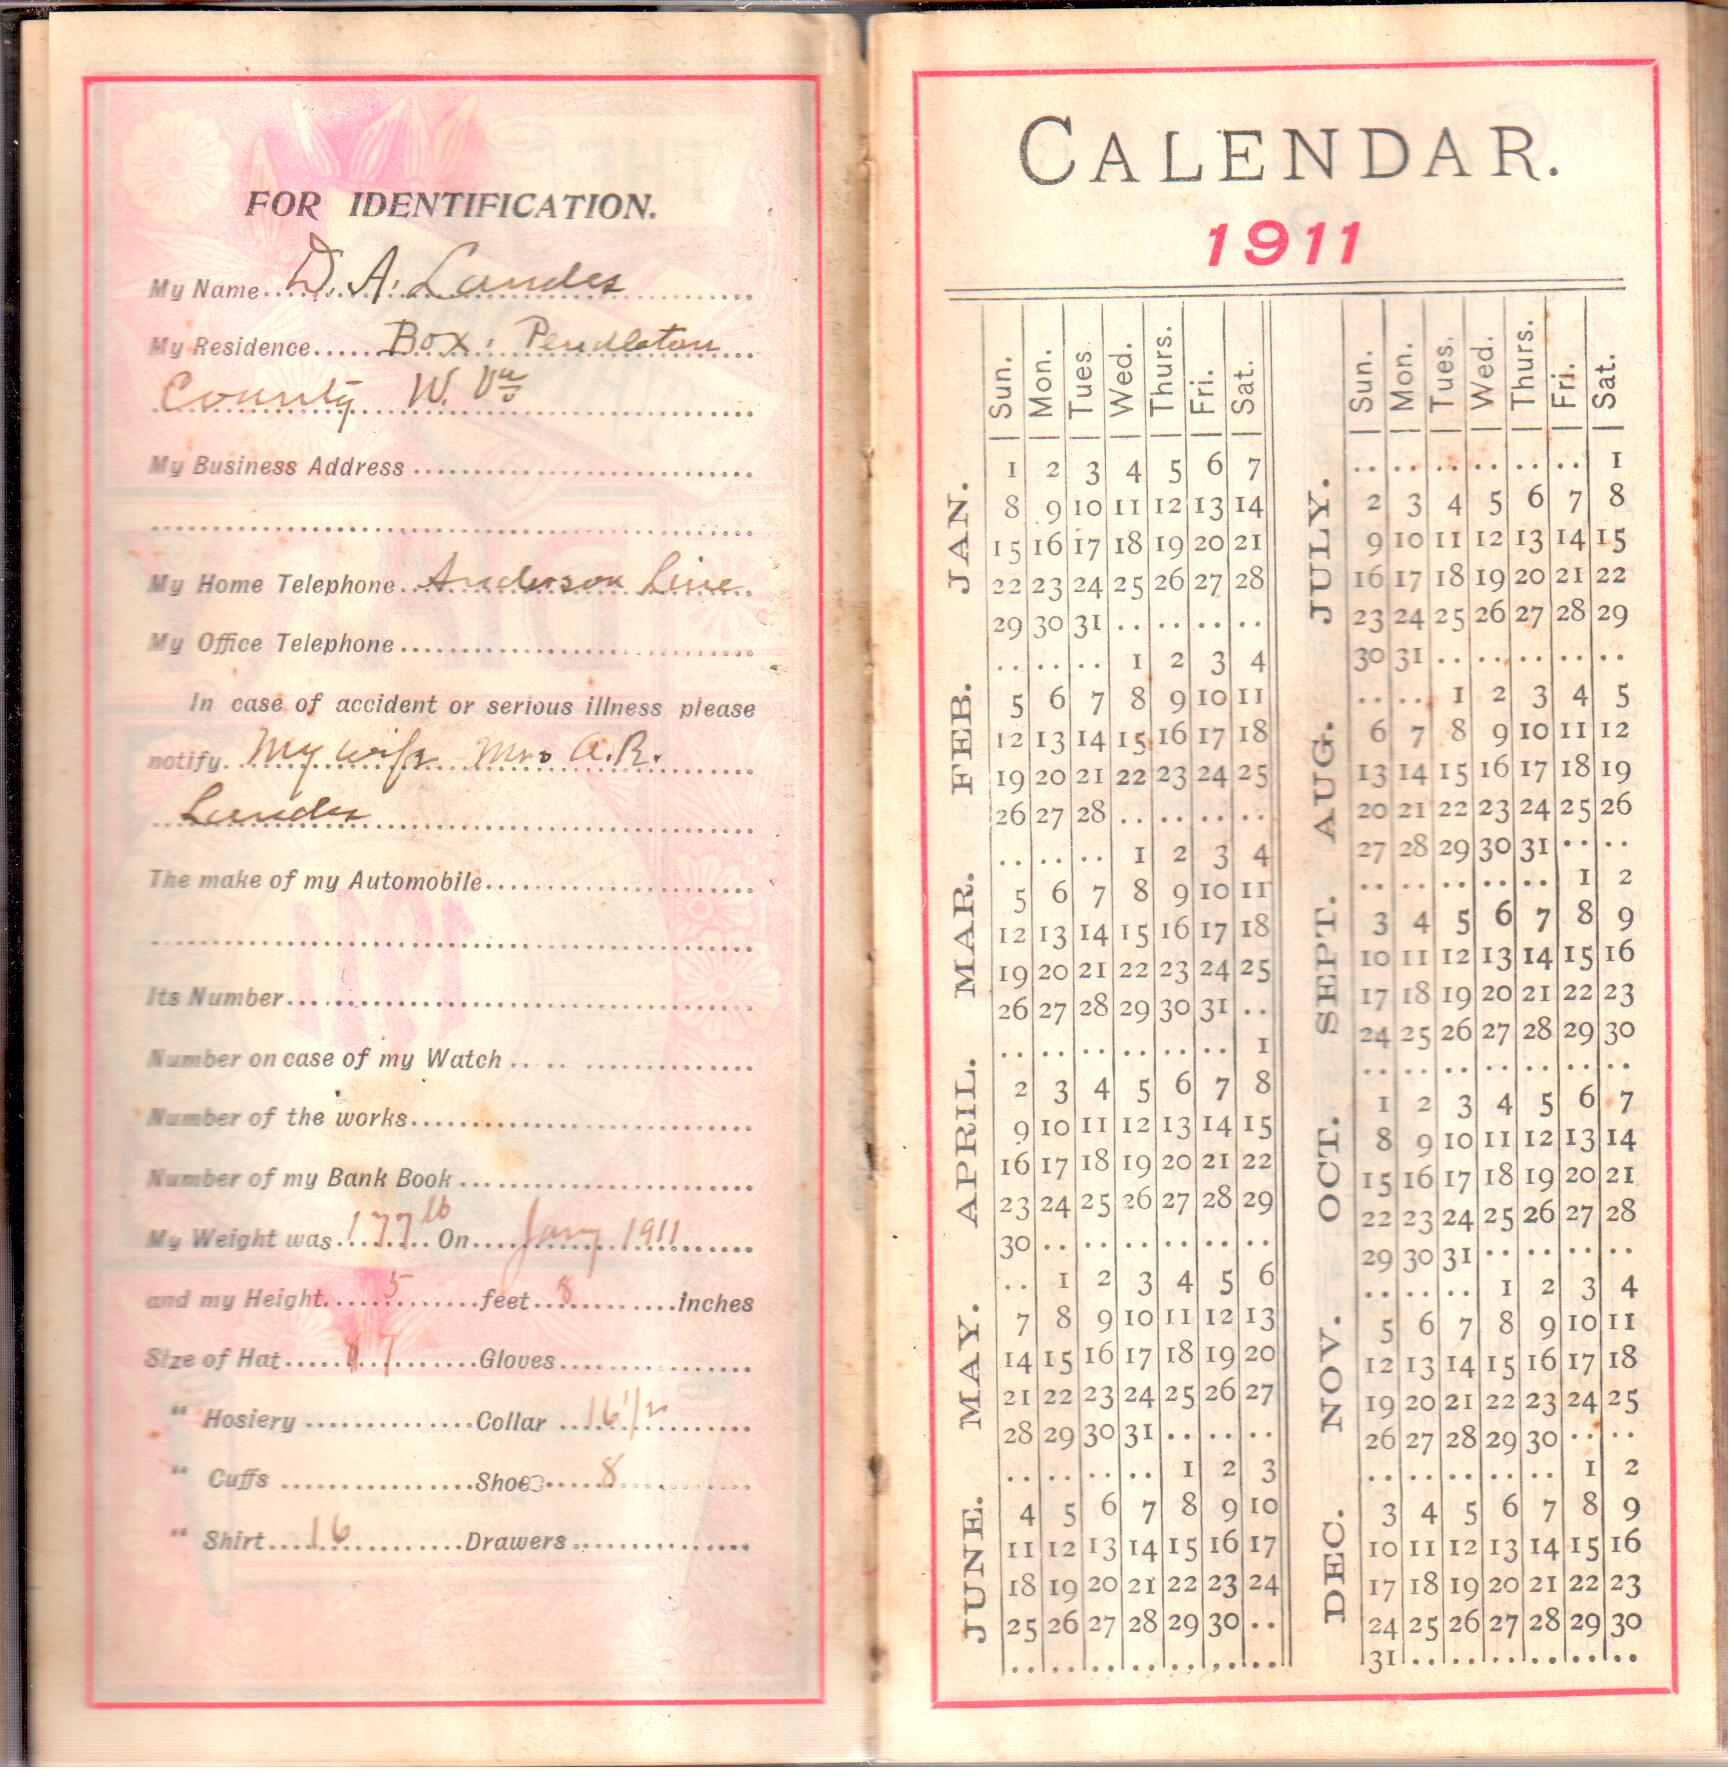 FOR IDENTIFICATION.
My Name D. A. Landes
My Residence Box, Pendleton
County W. Va
My Business Address
My Home Telephone Anderson Line
My Office Telephone
In case of accident or serious illness please
notify. My wife Mrs A. R.
Landes
The make of my Automobile
Its Number
Number on case of my Watch
Number of the works
Number of my Bank Book
My Weight was 177 lb On Jany 1911
and my Height 5 feet 8 inches
Size of Hat 7 Gloves
" Hosiery Collar 16 1/2
" Cuffs Shoes 8
" Shirt 16 Drawers
CALENDAR.
1911
Sun. Mon. Tues. Wed. Thurs. Fri. Sat.
JAN.
1 2 3 4 5 6 7
8 9 10 11 12 13 14
15 16 17 18 19 20 21
22 23 24 25 26 27 28
29 30 31
FEB.
1 2 3 4
5 6 7 8 9 10 11
12 13 14 15 16 17 18
19 20 21 22 23 24 25
26 27 28
MAR.
1 2 3 4
5 6 7 8 9 10 11
12 13 14 15 16 17 18
19 20 21 22 23 24 25
26 27 28 29 30 31
APRIL.
1
2 3 4 5 6 7 8
9 10 11 12 13 14 15
16 17 18 19 20 21 22
23 24 25 26 27 28 29
30
MAY.
1 2 3 4 5 6
7 8 9 10 11 12 13
14 15 16 17 18 19 20
21 22 23 24 25 26 27
28 29 30 31
JUNE.
1 2 3
4 5 6 7 8 9 10
11 12 13 14 15 16 17
18 19 20 21 22 23 24
25 26 27 28 29 30
Sun. Mon. Tues. Wed. Thurs. Fri. Sat.
JULY.
1
2 3 4 5 6 7 8
9 10 11 12 13 14 15
16 17 18 19 20 21 22
23 24 25 26 27 28 29
30 31
AUG.
1 2 3 4 5
6 7 8 9 10 11 12
13 14 15 16 17 18 19
20 21 22 23 24 25 26
27 28 29 30 31
SEPT.
1 2
3 4 5 6 7 8 9
10 11 12 13 14 15 16
17 18 19 20 21 22 23
24 25 26 27 28 29 30
OCT.
1 2 3 4 5 6 7
8 9 10 11 12 13 14
15 16 17 18 19 20 21
22 23 24 25 26 27 28
29 30 31
NOV.
1 2 3 4
5 6 7 8 9 10 11
12 13 14 15 16 17 18
19 20 21 22 23 24 25
26 27 28 29 30
DEC.
1 2
3 4 5 6 7 8 9
10 11 12 13 14 15 16
17 18 19 20 21 22 23
24 25 26 27 28 29 30
31